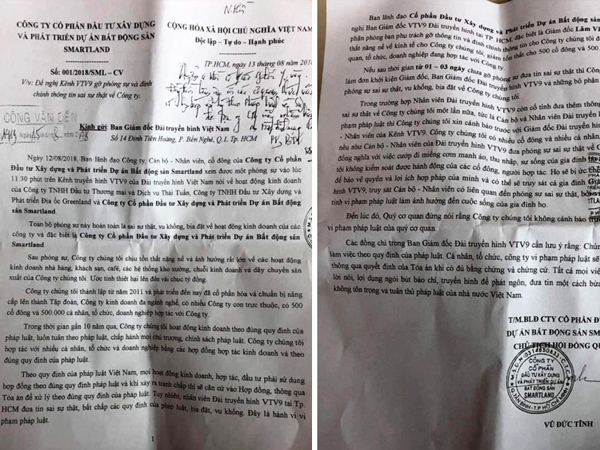 CÔNG TY CỔ PHẦN ĐẦU TƯ XÂY DỰNG
VÀ PHÁT TRIỂN DỰ ÁN BẤT ĐỘNG SẢN
SMARTLAND
Số: 001/2018/SML – CV
V/v: Đề nghị Kênh VTV9 gỡ phóng sự và đính
chính thông tin sai sự thật về Công ty.
CỘNG HÒA XÃ HỘI CHỦ NGHĨA VIỆT NAM
Độc lập - Tự do - Hạnh phúc
TP.HCM, ngày 13 tháng 08 năm 2018
CÔNG VĂN ĐẾN
Kính gửi: Ban Giám đốc Đài truyền hình Việt Nam
Số 14 Đinh Tiên Hoàng, P. Bến Nghé, Q.1, Tp. HCM
Ngày 12/08/2018, Ban Lãnh đạo Công ty, Cán bộ - Nhân viên, cổ đông của Công ty Cổ phần
Đầu tư Xây dựng và Phát triển Dự án Bất động sản Smartland xem được một phóng sự vào lúc
11:30 phát trên Kênh truyền hình VTV9 của Đài truyền hình Việt Nam nói về hoạt động kinh doanh
của Công ty TNHH Đầu tư Thương mại và Dịch vụ Thái Tuấn, Công ty TNHH Đầu tư Xây dựng và
Phát triển Địa ốc Greenland và Công ty Cổ phần Đầu tư Xây dựng và Phát triển Dự án Bất động sản
Smartland.
Toàn bộ phóng sự này hoàn toàn là sai sự thật, vu khống, bịa đặt về hoạt động kinh doanh của các
công ty và đặc biệt là Công ty Cổ phần Đầu tư Xây dựng và Phát triển Dự án Bất động sản
Smartland
Sau phóng sự, Công ty chúng tôi chịu tổn thất nặng nề và ảnh hưởng rất lớn về các hoạt động
kinh doanh nhà hàng, khách sạn, café, các hệ thống kho xưởng, chuỗi kinh doanh và dây chuyền sản
xuất của Công ty chúng tôi. Ước tính thiệt hại lên đến vài chục tỷ đồng.
Công ty chúng tôi thành lập từ năm 2011 và phát triển đến nay đã có hành và chuẩn bị nâng
cấp lên thành Tập đoàn, Công ty kinh doanh đa ngành nghề, có nhiều Công ty con trực thuộc, có 500
cổ đông và 500.000 cá nhân, tổ chức, doanh nghiệp hợp tác với Công ty.
Trong thời gian gần 10 năm qua, Công ty chúng tôi hoạt động kinh doanh theo đúng quy định của
pháp luật, luôn tuân theo pháp luật, chấp hành mọi chủ trương, chính sách pháp luật. Công ty chúng tôi
hợp tác với nhiều cá nhân, tổ chức và doanh nghiệp bằng các hợp đồng hợp tác kinh doanh và theo
đúng quy định của pháp luật.
Theo quy định của pháp luật Việt Nam, mọi hoạt động kinh doanh, hợp tác, đầu tư phải sử dụng
hợp đồng theo đúng quy định của pháp luật và khi xảy ra tranh chấp thì sẽ căn cứ vào Hợp đồng, thông qua
Tòa án để xử lý theo đúng quy định của pháp luật. Tuy nhiên, nhân viên Đài truyền hình VTV9 tại Tp.
HCM đưa tin sai sự thật, bất chấp các quy định của pháp luật, bịa đặt, vu khống. Đây là hành vi vi
phạm pháp luật.
1
Ban lãnh đạo Cổ phần Đầu tư Xây dựng và Phát triển Dự án Bất động sản
nghị Ban Giám đốc VTV9 Đài truyền hình tại TP. HCM, đặc biệt là Giám đốc Lâm Vă
phận phóng ban phụ trách gỡ thông tin và đính chính thông tin cho Công ty chúng tôi đ
thất nặng nề về kinh tế cho Công ty chúng tôi, giảm tổn thất cho 500 cổ đông và 500.
quan, tổ chức, doanh nghiệp đang hợp tác với Công ty.
Nếu sau thời gian từ 01 – 03 ngày chưa gỡ phóng sự đưa tin sai sự thật thì Công
làm đơn khởi kiện Giám đốc, Ban Giám đốc Đài truyền hình VTV9 và những bộ phận
sự sai sự thật, vu khống, bịa đặt về Công ty chúng tôi.
Trong trường hợp Nhân viên Đài truyền hình VTV9 còn cố tình đưa thêm thông
sai sự thật về Công ty chúng tôi một lần nữa, tức là Giám đốc, Ban Giám đốc và Nhân
phạm pháp luật thì Công ty chúng tôi xin cảnh báo trước với Giám đốc Đài truyền hình
Nhân viên của Kênh VTV9. Công ty chúng tôi có nhiều cổ đông và nhiều cá nhân, tổ
nếu như Cán bộ - Nhân viên của Đài truyền hình VTV9 còn tiếp tục đưa tin sai sự thật
đồng nghĩa với việc cướp đi miếng cơm manh áo, thu nhập, sự sống của gia đình họ
không kiểm soát được hành động của các cổ đông, người hợp tác. Họ sẽ bị ức chế
để bảo vệ quyền và lợi ích hợp pháp của mình và có thể sẽ truy sát cả gia đình Giám
VTV9, truy sát Cán bộ - Nhân viên có liên quan đến phóng sự sai sự thật, bôi
tình vi phạm pháp luật làm ảnh hưởng đến cuộc sống của gia đình họ.
Đến lúc đó, Quý cơ quan đừng nói rằng Công ty chúng tôi không cảnh báo trước
vi phạm pháp luật của quý cơ quan.
Các đồng chí trong Ban Giám đốc Đài truyền hình VTV9 cần lưu ý rằng: Chúng
làm việc theo quy định của pháp luật. Cá nhân, tổ chức, công ty vi phạm pháp luật sẽ
thông qua quyết định của Tòa án khi có đủ bằng chứng và chứng cứ. Tất cả mọi việc
lời nói, lợi dụng ngòi bút báo chí, truyền hình để phán ngôn, đưa tin một cách bừa
không tôn trọng và tuân thủ pháp luật của nhà nước Việt Nam.
T/M.BLĐ CTY CỔ PHẦN Đ
DỰ ÁN BẤT ĐỘNG SẢN SM
CHỦ TỊCH HỘI ĐỒNG QU
CÔNG TY
CỔ PHẦN
ĐẦU TƯ XÂY DỰNG
VÀ PHÁT TRIỂN DỰ ÁN
BẤT ĐỘNG SẢN
SMARTLAND
VŨ ĐỨC TĨNH